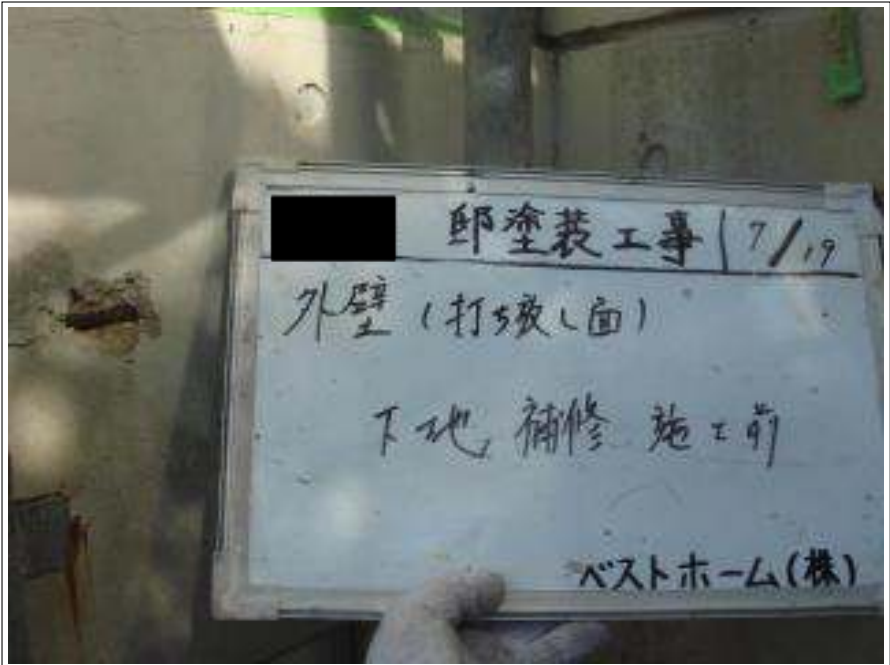 邸塗装工事 7/19
外壁(打ち放し面)
下地補修施工前
ベストホーム(株)